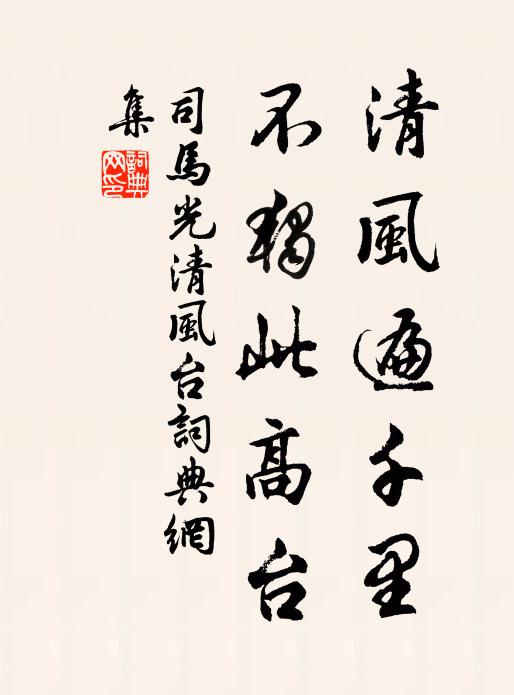 清風遍千里
不獨此高台
司馬光清風台詞典網
集
詞典
网印